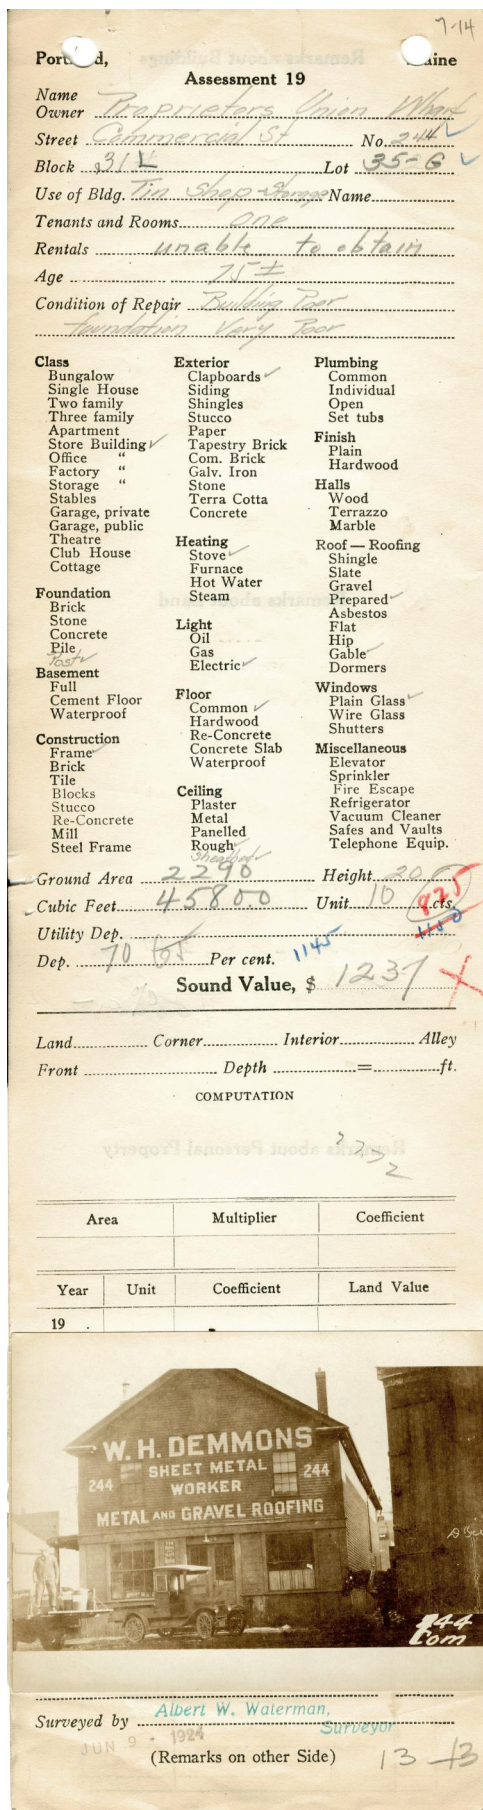 7-14
Portland, Maine
Assessment 19
Name
Owner Proprietors Union Wharf
Street Commercial St No. 244
Block 31 L Lot 35-6
Use of Bldg. Tin Shop - Storage Name
Tenants and Rooms one
Rentals unable to obtain
Age 75 ±
Condition of Repair Building Poor
foundation Very Poor
Class
Bungalow
Single House
Two family
Three family
Apartment
Store Building ✓
Office "
Factory "
Storage "
Stables
Garage, private
Garage, public
Theatre
Club House
Cottage
Foundation
Brick
Stone
Concrete
Pile
Post ✓
Basement
Full
Cement Floor
Waterproof
Construction
Frame ✓
Brick
Tile
Blocks
Stucco
Re-Concrete
Mill
Steel Frame
Exterior
Clapboards ✓
Siding
Shingles
Stucco
Paper
Tapestry Brick
Com. Brick
Galv. Iron
Stone
Terra Cotta
Concrete
Heating
Stove ✓
Furnace
Hot Water
Steam
Light
Oil
Gas
Electric ✓
Floor
Common ✓
Hardwood
Re-Concrete
Concrete Slab
Waterproof
Ceiling
Plaster
Metal
Panelled
Rough ✓
Sheathed ✓
Plumbing
Common
Individual
Open
Set tubs
Finish
Plain
Hardwood
Halls
Wood
Terrazzo
Marble
Roof — Roofing
Shingle
Slate
Gravel
Prepared ✓
Asbestos
Flat
Hip
Gable ✓
Dormers
Windows
Plain Glass ✓
Wire Glass
Shutters
Miscellaneous
Elevator
Sprinkler
Fire Escape
Refrigerator
Vacuum Cleaner
Safes and Vaults
Telephone Equip.
Ground Area 2290 Height 20
Cubic Feet 45800 Unit 10 cts. 825
Utility Dep. 1150
Dep. 70 65 Per cent. 1145
Sound Value, $ 1237
Land Corner Interior Alley
Front Depth = ft.
COMPUTATION
Remarks about Personal Property
Area Multiplier Coefficient
Year Unit Coefficient Land Value
19
W. H. DEMMONS
244 SHEET METAL 244
WORKER
METAL AND GRAVEL ROOFING
244
Com
Surveyed by Albert W. Waterman,
Surveyor
JUN 9 - 1924
(Remarks on other Side)
13-13